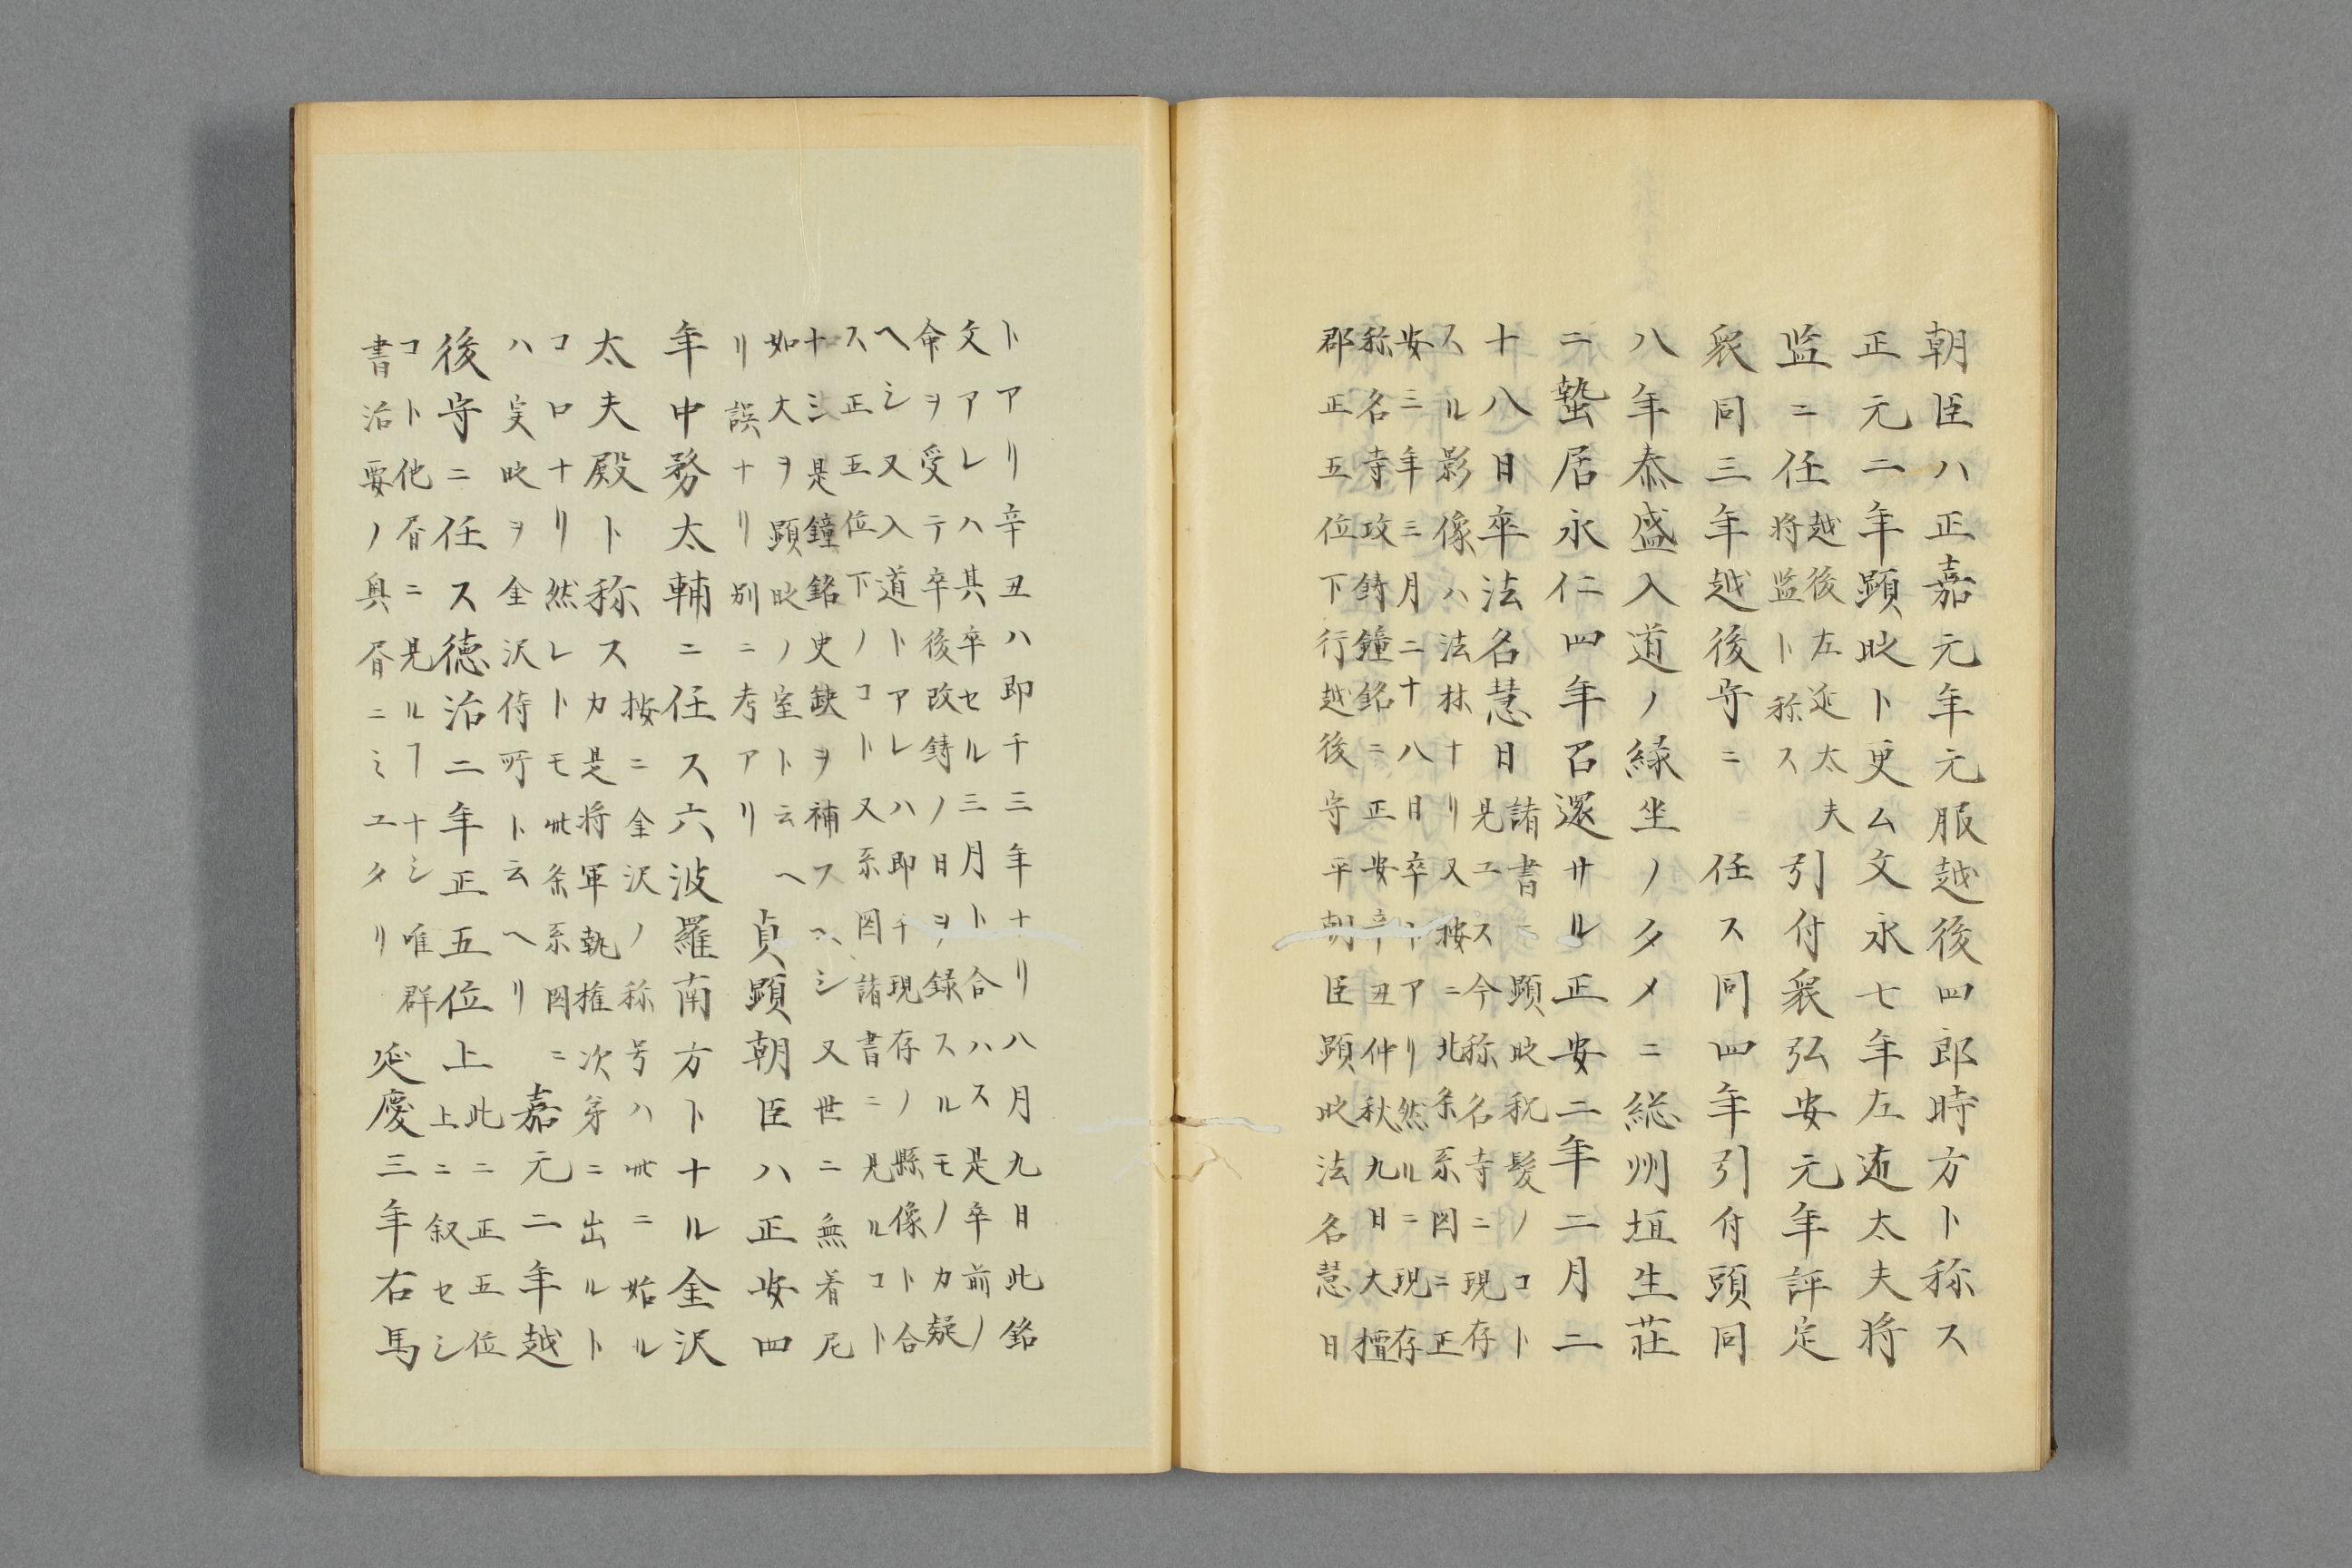 朝臣ハ正嘉元年元服越後四郎時方ト称ス
正元二年顕時ト更ム文永七年左近太夫将
監ニ任越後左近太夫
将監ト称ス
引付衆弘安元年評定
衆同三年越後守ニ任ス同四年引付頭同
八年泰盛入道ノ縁坐ノタメニ総州垣生荘
ニ蟄居永仁四年召還サル正安二年二月二
十八日卒法名慧日諸書ニ顕時祝髪ノコト
見エス今称名寺ニ現存
スル影像ハ法体ナリ又按ニ北条系図ニ正
安三年三月二十八日卒トアリ然ルニ現存
称名寺攻鋳鐘銘ニ正安辛丑仲秋九日大檀
郡正五位下行越後守平朝臣顕時法名慧日
トアリ辛丑ハ即チ三年ナリ八月九日此銘
文アレハ其卒セル三月ト合ハス是卒前ノ
命ヲ受テ卒後改鋳ノ日ヲ録スルモノカ疑
ヘシ又入道トアレハ即チ現存ノ縣像ト合
ス正五位下ノコト又系図諸書ニ見ルコト
ナシ是鐘銘史缺ヲ補フヘシ又世ニ無着尼
如大ヲ顕時ノ室ト云ヘ
リ誤ナリ別ニ考アリ
貞顕朝臣ハ正安四
年中務太輔ニ任ス六波羅南方トナル金沢
太夫殿ト称ス按ニ金沢ノ称号ハ此ニ始ル
カ是将軍執権次第ニ出ルト
コロナリ然レトモ此条系図ニ
ハ実時ヲ金沢侍所ト云ヘリ
嘉元二年越
後守ニ任ス徳治二年正五位上此ニ正五位
上ニ叙セシ
コト他書ニ見ルヿナシ唯群
書治要ノ奥書ニミユタリ
延慶三年右馬